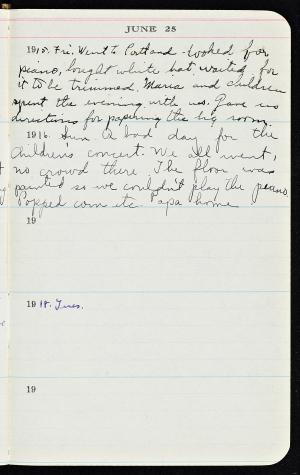 JUNE 25
1915. Fri. Went to Portland - looked for
piano, bought white hat, waited for
it to be trimmed. Maria and children
spent the evening with us. Gave us
directions for papering the big room.
1916. Sun A bad day for the
Children's concert. We all went,
no crowd there. The floor was
painted so we couldn't play the piano.
Popped corn etc. Papa home
19
1918. Tues.
19